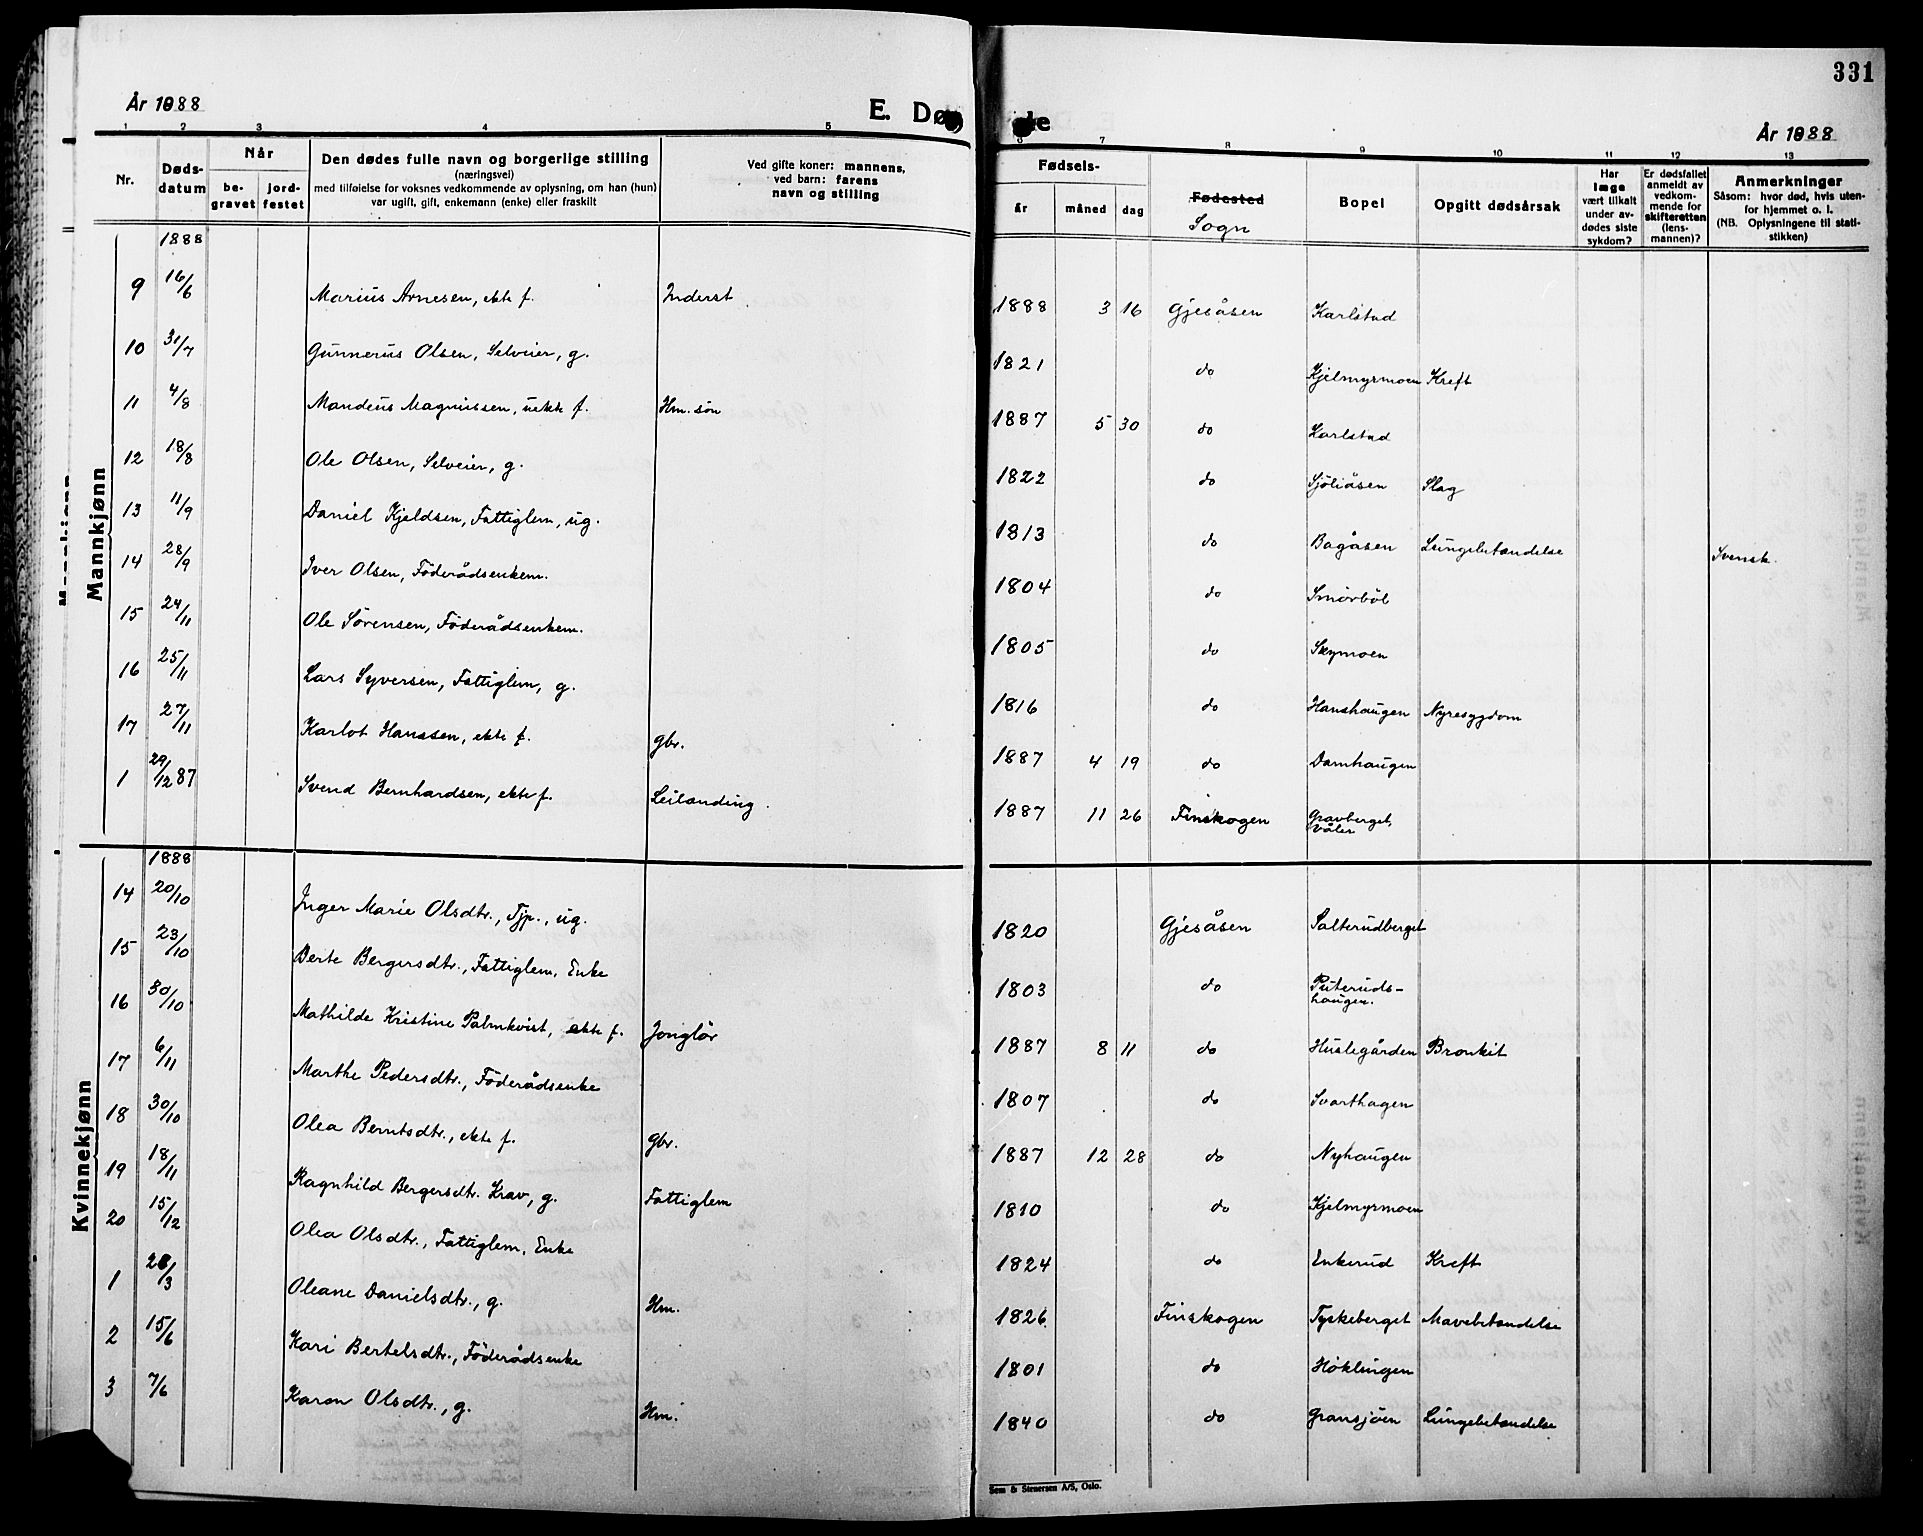 331
År 1888
E. Dø de
År 1888
1 2 3 4 5 6 7 8 9 10 11 12 13
Nr.
Døds-
datum
Når
be-
gravet
jord-
festet
Den dødes fulle navn og borgerlige stilling
(næringsvei)
med tilføielse for voksnes vedkommende av oplysning, om han (hun)
var ugift, gift, enkemann (enke) eller fraskilt
Ved gifte koner: mannens,
ved barn: farens
navn og stilling
Fødsels-
år måned dag
Fødested
Sogn
Bopel
Opgitt dødsårsak
Har
læge
vært tilkalt
under av-
dødes siste
sykdom?
Er dødsfallet
anmeldt av
vedkom-
mende for
skifteretten
(lens-
mannen)?
Anmerkninger
Såsom: hvor død, hvis uten-
for hjemmet o. l.
(NB. Oplysningene til stati-
stikken)
Mannkjønn
1888
9 16/6 Marius Arnesen, ekte f. Inderst. 1888 3 16 Gjesåsen Karlstad
10 31/7 Gunnerus Olsen, Selveier, g. 1821 do Kjelmyrmoen Kreft
11 4/8 Mandeus Magnussen, uekte f. Hm. søn 1887 5 30 do Karlstad
12 18/8 Ole Olsen, Selveier, g. 1822 do Sjöliåsen Slag
13 11/9 Daniel Kjeldsen, Fattiglem, ug. 1813 do Bagåsen Lungebetændelse Svensk.
14 28/9 Iver Olsen, Föderådsenkem. 1804 do Smörböl
15 24/11 Ole Sörensen, Föderådsenkem. 1805 do Skymoen
16 25/11 Lars Syversen, Fattiglem, g. 1816 do Hanshaugen Nyresygdom
17 27/11 Karlot Hanssen, ekte f. Gbr. 1887 4 19 do Damhaugen
1 29/12 87 Svend Bernhardsen, ekte f. Leilænding. 1887 11 26 Finskogen Gravberget, Våler
Kvinnekjønn
1888
14 20/10 Inger Marie Olsdtr., Tjp., ug. 1820 Gjesåsen Salterudberget
15 23/10 Berte Bergersdtr., Fattiglem, Enke 1803 do Puteruds-
haugen.
16 30/10 Mathilde Kristine Palmkvist, ekte f. Jonglör 1887 8 11 do Huslegården Bronkit
17 6/11 Marthe Pedersdtr., Föderådsenke 1807 do Svarthagen
18 30/10 Olea Berntsdtr., ekte f. Gbr. 1887 12 28 do Nyhaugen
19 18/11 Ragnhild Bergersdtr. Krav, g. Fattiglem 1810 do Kjelmyrmoen
20 15/12 Olea Olsdtr., Fattiglem, Enke 1824 do Enkerud Kreft
1 /3 Oleane Danielsdtr., g. Hm. 1826 Finskogen Tyskeberget Mavebetændelse
2 15/6 Kari Bertelsdtr., Föderådsenke 1801 do Höklingen
3 7/6 Karen Olsdtr., g. Hm. 1840 do Gransjöen Lungebetændelse
Sem & Stenersen A/S, Oslo.